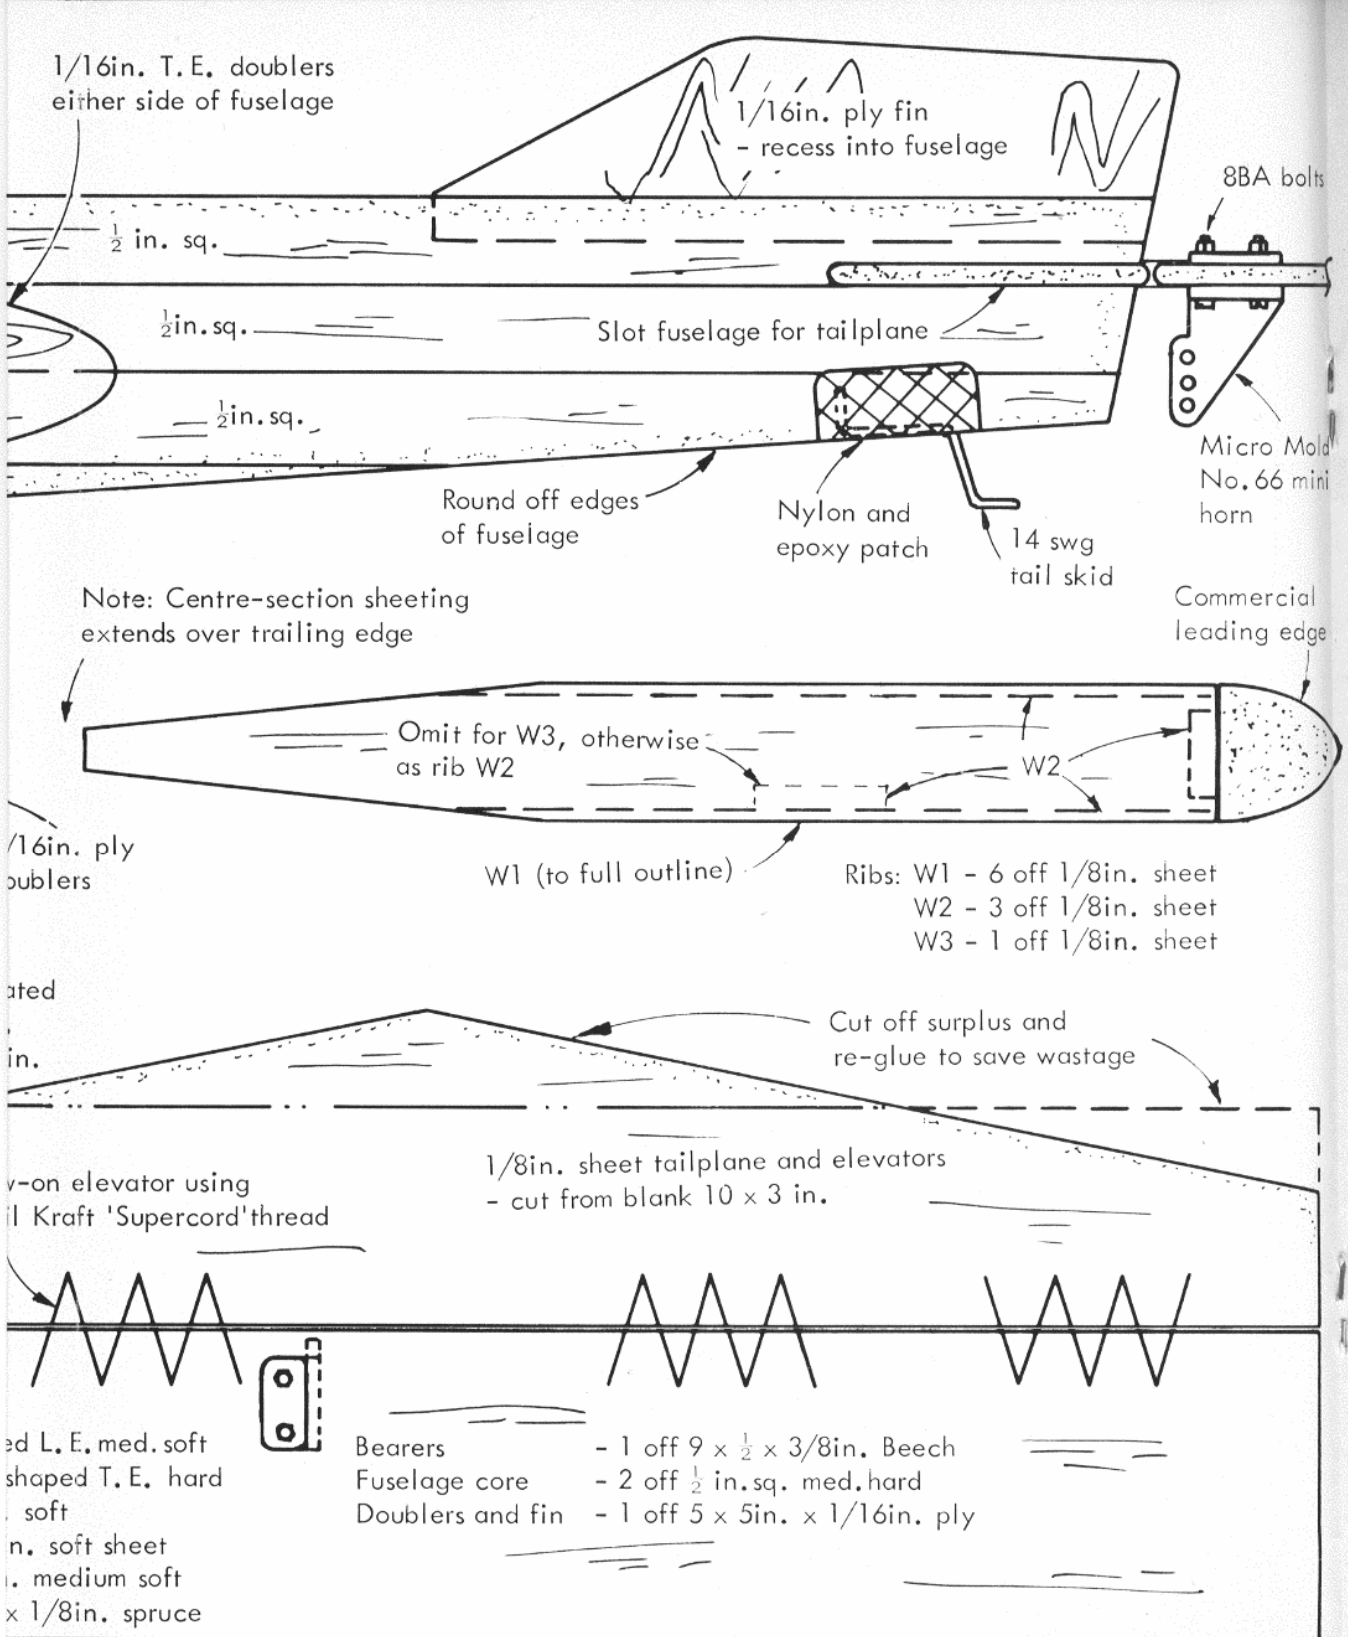 1/16in. T.E. doublers
either side of fuselage
1/16in. ply fin
- recess into fuselage
8BA bolts
½ in. sq.
½in.sq.
Slot fuselage for tailplane
½in.sq.
Micro Mold
No.66 mini
horn
Round off edges
of fuselage
Nylon and
epoxy patch
14 swg
tail skid
Note: Centre-section sheeting
extends over trailing edge
Commercial
leading edge
Omit for W3, otherwise
as rib W2
W2
/16in. ply
oublers
W1 (to full outline)
Ribs: W1 - 6 off 1/8in. sheet
W2 - 3 off 1/8in. sheet
W3 - 1 off 1/8in. sheet
ated
in.
Cut off surplus and
re-glue to save wastage
1/8in. sheet tailplane and elevators
- cut from blank 10 x 3 in.
-on elevator using
l Kraft 'Supercord' thread
ed L.E. med. soft
shaped T.E. hard
soft
n. soft sheet
. medium soft
x 1/8in. spruce
Bearers - 1 off 9 x ½ x 3/8in. Beech
Fuselage core - 2 off ½ in.sq. med.hard
Doublers and fin - 1 off 5 x 5in. x 1/16in. ply